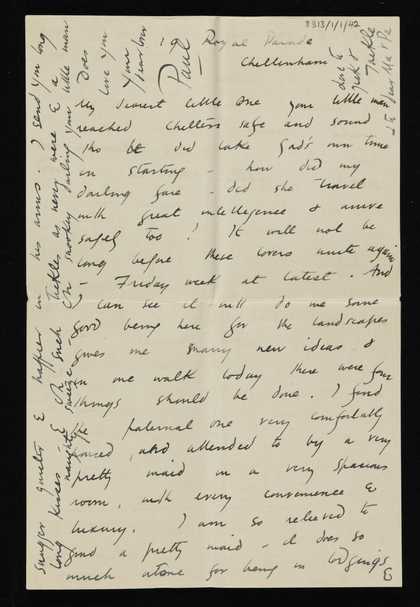 8313/1/1/42
19 Royal Parade
Cheltenham
My dearest little One your little man
reached Chelters safe and sound
tho he did take God's own time
in starting - how did my
darling fare - did she travel
with great intelligence & arrive
safely too? It will not be
long before these lovers unite again
- Friday week at latest. And
I can see it will do me some
good being here for the landscapes
gives me many new ideas &
in one walk today there were four
things should be done. I find
the paternal one very comfortably
housed, and attended to by a very
pretty maid in a very spacious
room, with every convenience &
luxury. I am so relieved to
find a pretty maid - it does so
much atone for being in lodgings &
snugger quieter & happier in his arms. I send you long
long kisses & such tickles as never were & a
naughty squeeze Oh snookey darling your little man
Does
love you
Your
dear love
Paul
love to
dear Ma & Pa